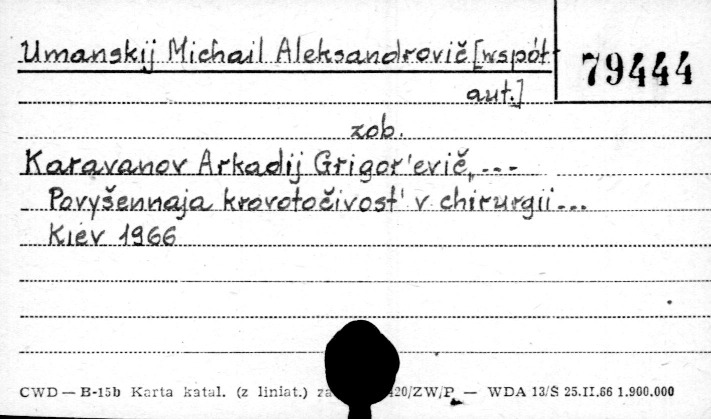 Umanskij Michail Aleksandrovič [współ-
79444
aut.]
zob.
Karavanov Arkadij Grigor'evič, ---
Povyšennaja krovotočivost' v chirurgii...
Kiev 1966
CWD — B-15b Karta katal. (z liniat.) 20/ZW/P — WDA 13/Ś 25.II.66 1.900.000